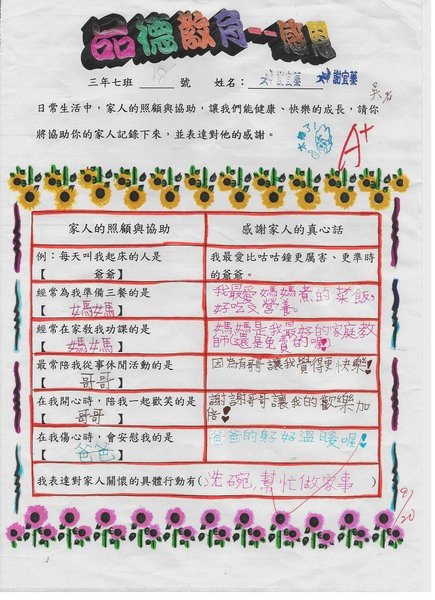 品德教育－感恩
三年七班 18 號 姓名： 謝宜蓁 謝宜蓁
日常生活中，家人的照顧與協助，讓我們能健康、快樂的成長，請你
將協助你的家人記錄下來，並表達對他的感謝。
太棒了
A+
家人的照顧與協助
感謝家人的真心話
例：每天叫我起床的人是
【 爺爺 】
我最愛比咕咕鐘更厲害、更準時
的爺爺。
經常為我準備三餐的是
【 媽媽 】
我最愛媽媽煮的菜飯，
好吃又營養。
經常在家教我功課的是
【 媽媽 】
媽媽是我最好的家庭教
師(還是免費的喔)!
最常陪我從事休閒活動的是
【 哥哥 】
因為有哥哥讓我覺得更快樂!
在我開心時，陪我一起歡笑的是
【 哥哥 】
謝謝哥哥讓我的歡樂加
倍!
在我傷心時，會安慰我的是
【 爸爸 】
爸爸的身好溫暖喔!
我表達對家人關懷的具體行動有(洗碗,幫忙做家事 )
9/20